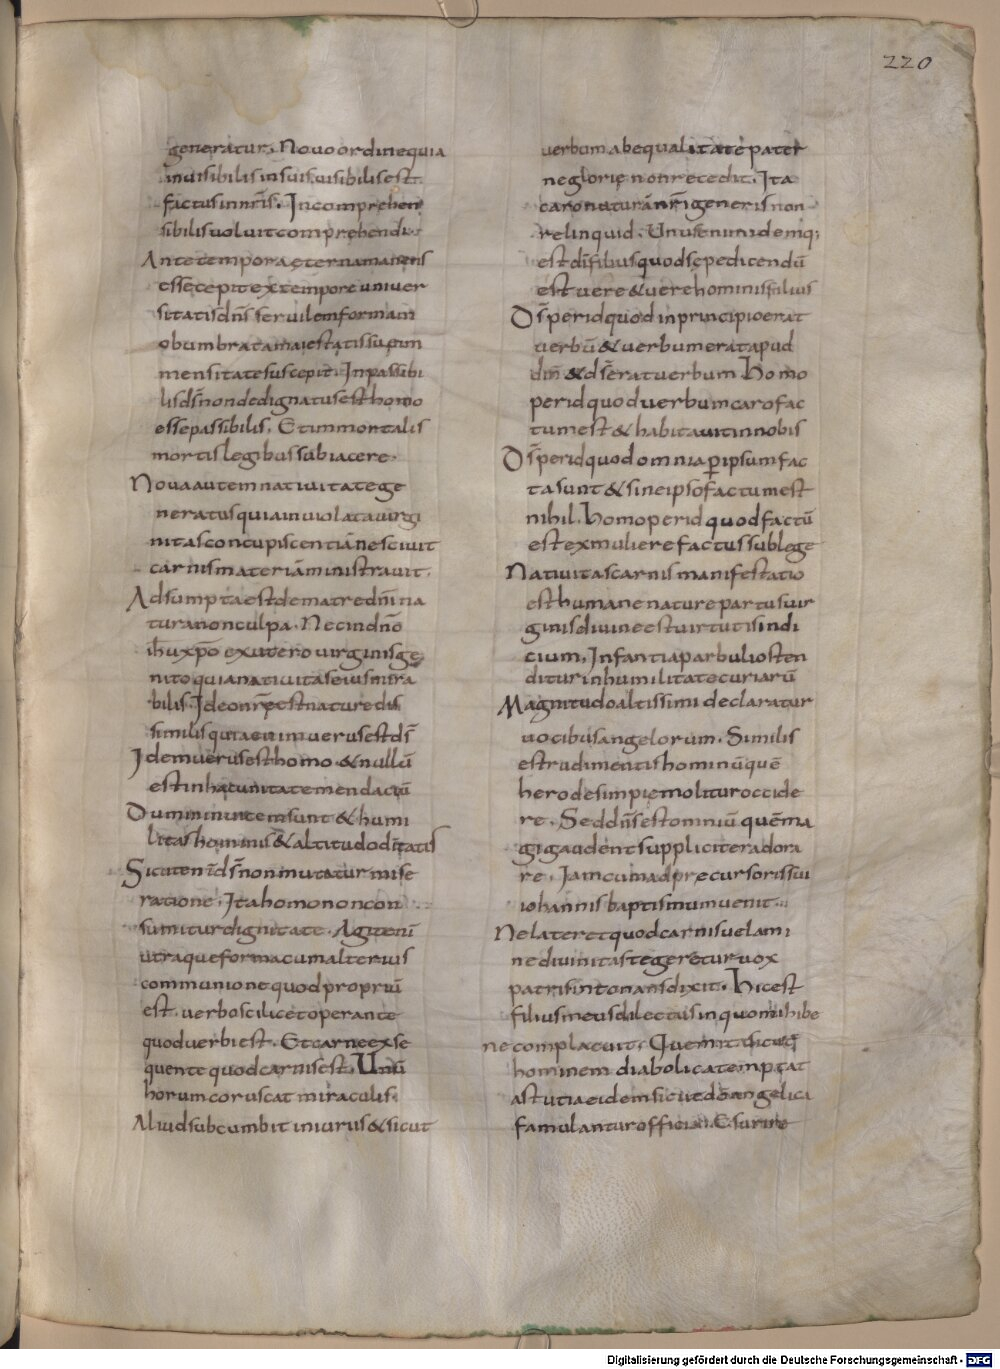 220
generatur. Novo ordine quia
invisibilis in suis visibilis est
factus in nr̄is. Incomprehen
sibilis voluit comprehendi.
Ante tempora ęterna manens
esse cepit ex tempore univer
sitatis dn̄s servilem formam
obumbrata maiestatis suę im
mensitate suscepit. Inpassibi
lis ds̄ non dedignatus est homo
esse passibilis. Et immortalis
mortis legibus subiacere.
Nova autem nativitate ge
neratus quia inviolata virgi
nitas concupiscentiā nescivit
carnis materiā ministravit.
Adsumpta est de matre dn̄i na
tura non culpa. Nec in dn̄o
ih̄u xp̄o ex utero virginis ge
nito quia nativitas eius mira
bilis. Ideo nr̄ę est nature dis
similis qui aenim verus est ds̄
Idem verus est homo & nullū
est in hac unitate mendaciū
Dum invincem sunt & humi
litas hominis & altitudo dītatis
Sicut en̄ ds̄ non mutatur mise
ratione. Ita homo non con
sumitur dignitate. Agit en̄
utraque forma cum alterius
communione quod propriū
est. verbo scilicet operante
quod verbi est. Et carne exse
quente quod carnis est. Unū
horum coruscat miraculis.
Aliud subcumbit iniuriis & sicut
verbum ab equalitate pater
ne glorię non recedit. Ita
caro naturā nr̄i generis non
relinquid. Unus enim idemq;
est dī filius quod sępe dicendū
est vere & vere hominis filius
Ds̄ per id quod in principio erat
verbū & verbum erat apud
dm̄ & ds̄ erat verbum. Homo
per id quod verbum caro fac
tum est & habitavit in nobis
Ds̄ per id quod omnia p̄ ipsum fac
ta sunt & sine ipso factum est
nihil. Homo per id quod factū
est ex muliere factus sub lege
Nativitas carnis manifestatio
est humane nature partus vir
ginis divine est virtutis indi
cium. Infantia parbuli osten
ditur in humilitate cunarū
Magnitudo altissimi declaratur
vocibus angelorum. Similis
est rudimentis hominū quē
herodes impie molitur occide
re. Sed dn̄s est omniū quē ma
gi gaudent suppliciter adora
re. Iam cum ad precursoris sui
iohannis baptismum venit.
Ne lateret quod carnis velami
ne divinitas tegeretur vox
patris intonans dixit. Hic est
filius meus dilectus in quo mihi be
ne complacuit. Quem it sicut
hominem diabolica temptat
astutia eidem sicut dō angelici
famulantur officia. Esurire
Digitalisierung gefördert durch die Deutsche Forschungsgemeinschaft - DFG